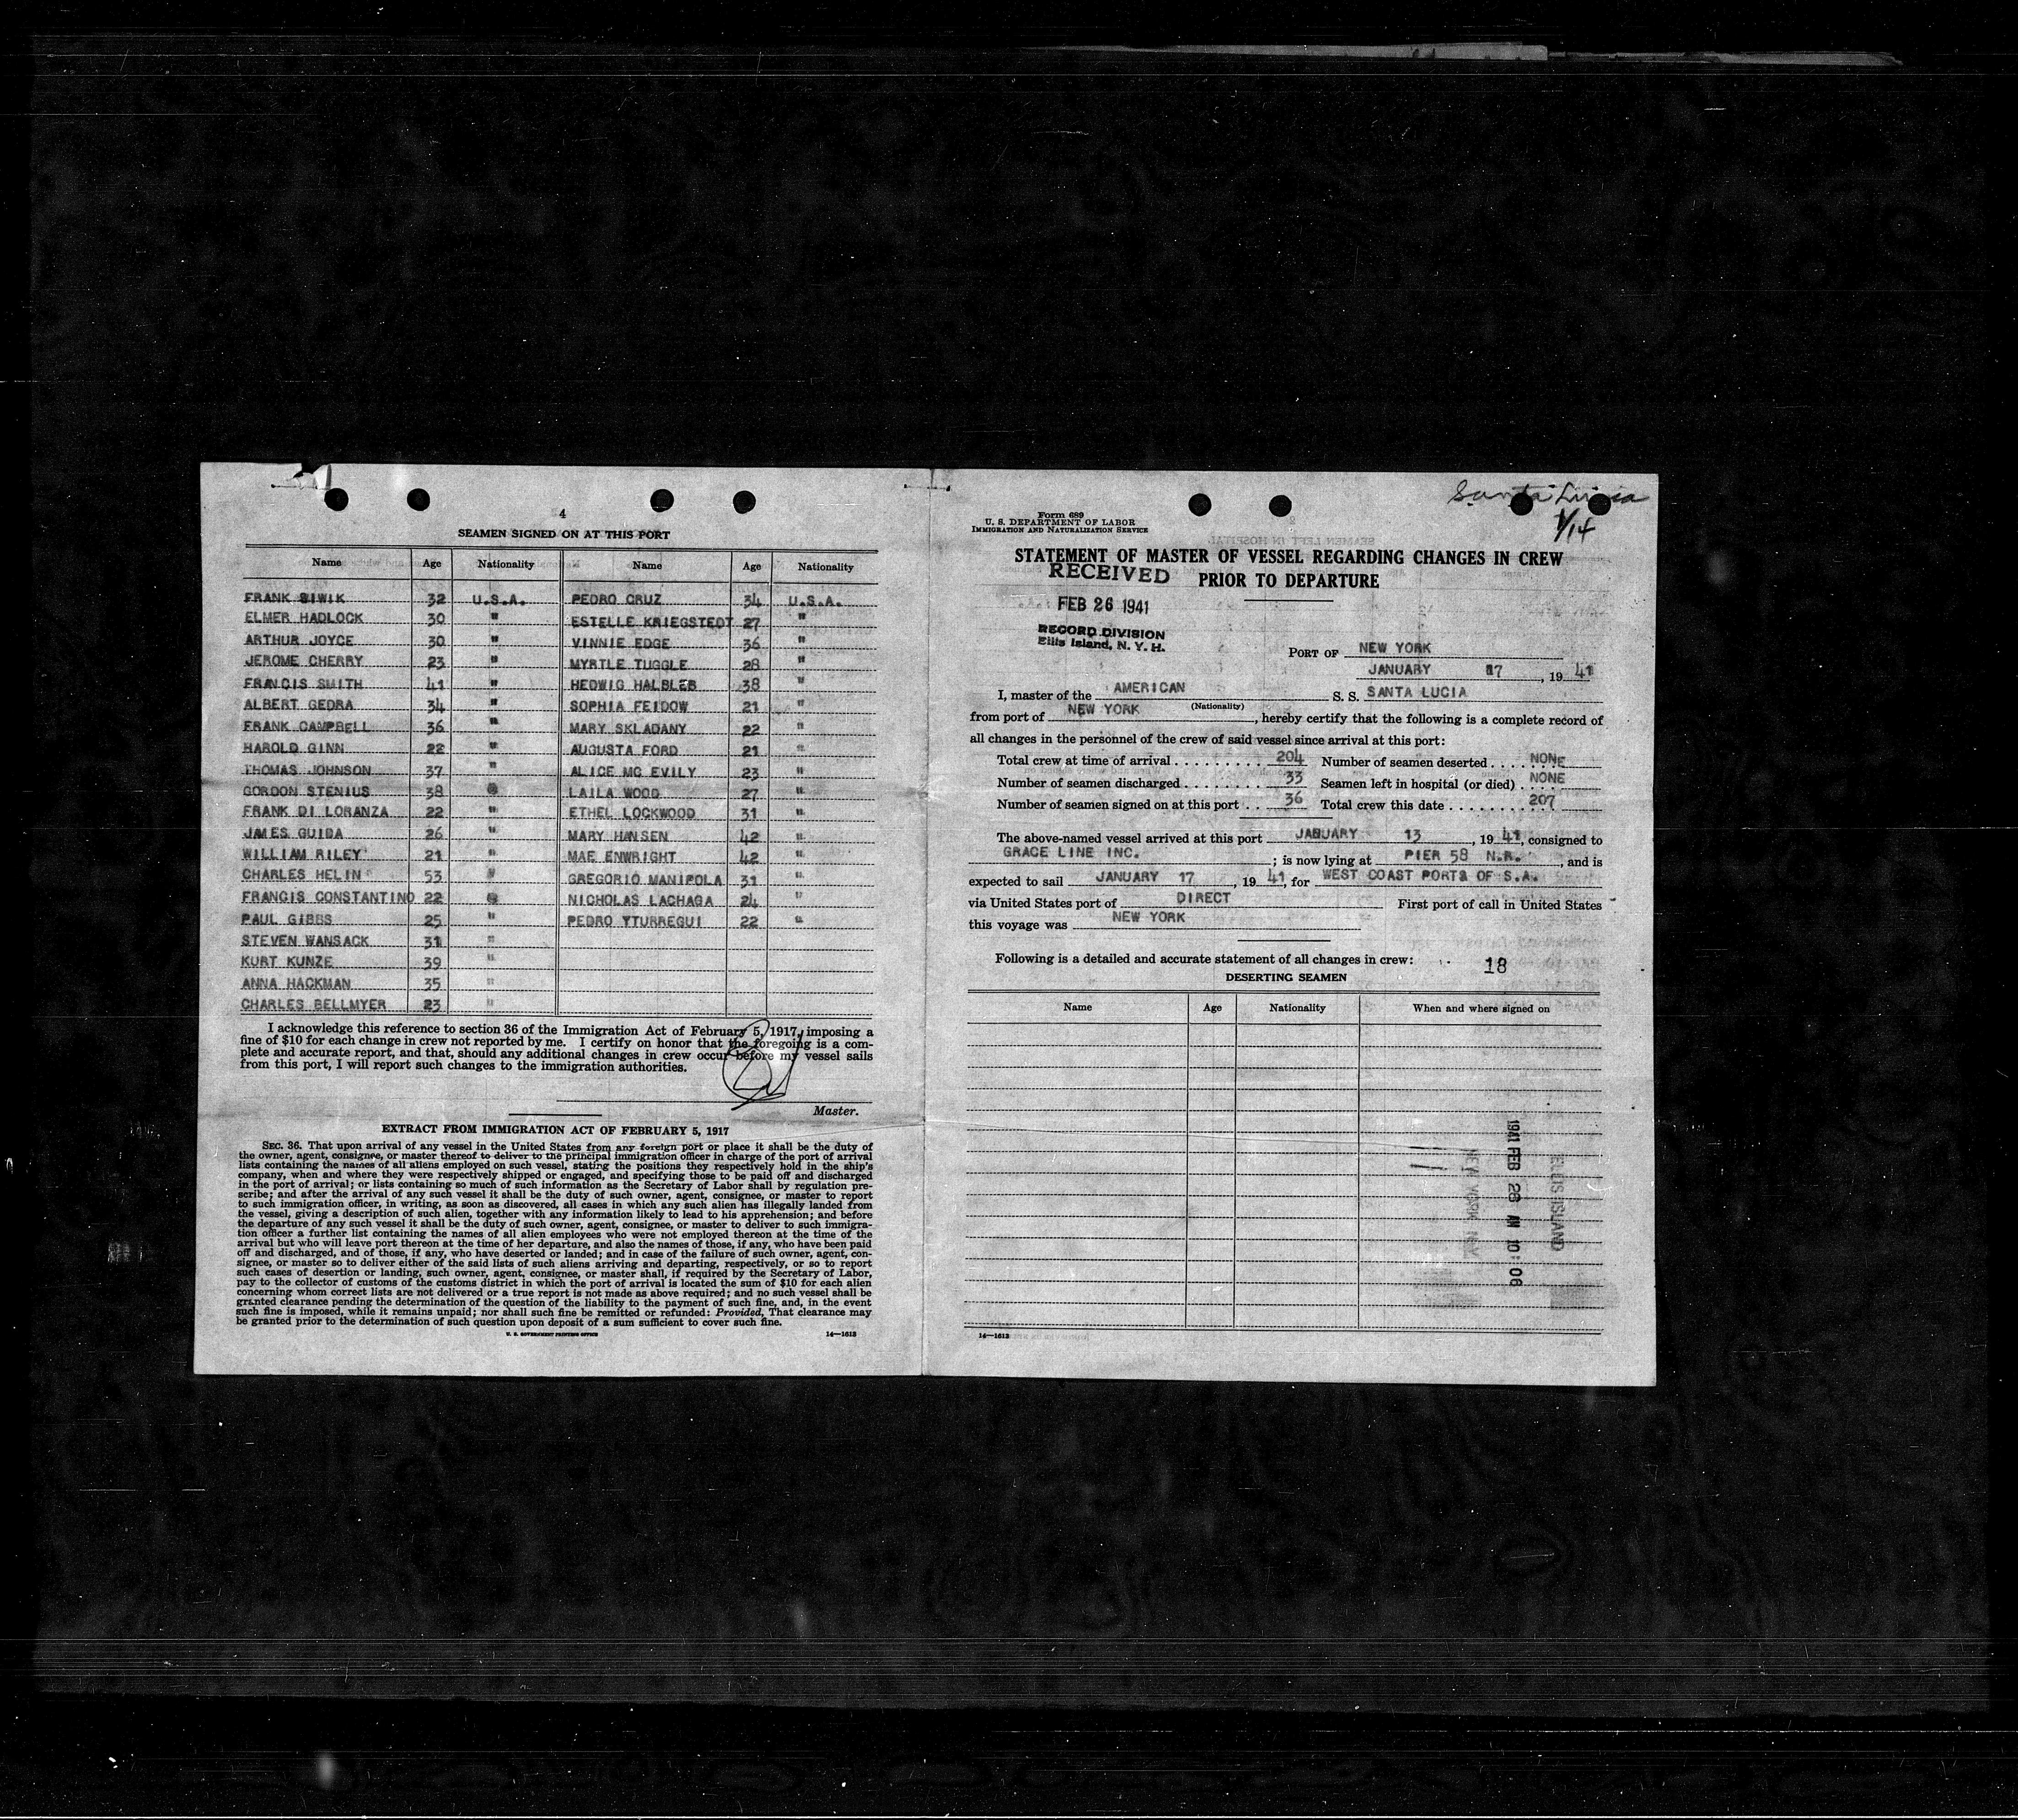 4
SEAMEN SIGNED ON AT THIS PORT
Name Age Nationality Name Age Nationality
FRANK SIWIK 32 U.S.A. PEDRO CRUZ 34 U.S.A.
ELMER HADLOCK 30 " ESTELLE KRIEGSTEDT 27 "
ARTHUR JOYCE 30 " VINNIE EDGE 36 "
JEROME CHERRY 23 " MYRTLE TUGGLE 28 "
FRANCIS SMITH 41 " HEDWIG HALBLEB 38 "
ALBERT GEDRA 34 " SOPHIA FEIDOW 21 "
FRANK CAMPBELL 36 " MARY SKLADANY 22 "
HAROLD GINN 22 " AUGUSTA FORD 21 "
THOMAS JOHNSON 37 " ALICE MC EVILY 23 "
GORDON STENIUS 38 " LAILA WOOD 27 "
FRANK DI LORANZA 22 " ETHEL LOCKWOOD 31 "
JAMES GUIDA 26 " MARY HANSEN 42 "
WILLIAM RILEY 21 " MAE ENWRIGHT 42 "
CHARLES HELIN 53 " GREGORIO MANIPOLA 31 "
FRANCIS CONSTANTINO 22 " NICHOLAS LACHAGA 24 "
PAUL GIBBS 25 " PEDRO YTURREGUI 22 "
STEVEN WANSACK 31 "
KURT KUNZE 39 "
ANNA HACKMAN 35 "
CHARLES BELLMYER 23 "
I acknowledge this reference to section 36 of the Immigration Act of February 5, 1917, imposing a
fine of $10 for each change in crew not reported by me. I certify on honor that the foregoing is a com-
plete and accurate report, and that, should any additional changes in crew occur before my vessel sails
from this port, I will report such changes to the immigration authorities.
Master.
EXTRACT FROM IMMIGRATION ACT OF FEBRUARY 5, 1917
SEC. 36. That upon arrival of any vessel in the United States from any foreign port or place it shall be the duty of
the owner, agent, consignee, or master thereof to deliver to the principal immigration officer in charge of the port of arrival
lists containing the names of all aliens employed on such vessel, stating the positions they respectively hold in the ship's
company, when and where they were respectively shipped or engaged, and specifying those to be paid off and discharged
in the port of arrival; or lists containing so much of such information as the Secretary of Labor shall by regulation pre-
scribe; and after the arrival of any such vessel it shall be the duty of such owner, agent, consignee, or master to report
to such immigration officer, in writing, as soon as discovered, all cases in which any such alien has illegally landed from
the vessel, giving a description of such alien, together with any information likely to lead to his apprehension; and before
the departure of any such vessel it shall be the duty of such owner, agent, consignee, or master to deliver to such immigra-
tion officer a further list containing the names of all alien employees who were not employed thereon at the time of the
arrival but who will leave port thereon at the time of her departure, and also the names of those, if any, who have been paid
off and discharged, and of those, if any, who have deserted or landed; and in case of the failure of such owner, agent, con-
signee, or master so to deliver either of the said lists of such aliens arriving and departing, respectively, or so to report
such cases of desertion or landing, such owner, agent, consignee, or master shall, if required by the Secretary of Labor,
pay to the collector of customs of the customs district in which the port of arrival is located the sum of $10 for each alien
concerning whom correct lists are not delivered or a true report is not made as above required; and no such vessel shall be
granted clearance pending the determination of the question of the liability to the payment of such fine, and, in the event
such fine is imposed, while it remains unpaid; nor shall such fine be remitted or refunded: Provided, That clearance may
be granted prior to the determination of such question upon deposit of a sum sufficient to cover such fine.
U. S. GOVERNMENT PRINTING OFFICE 14—1613
Santa Lucia
1/14
Form 689
U. S. DEPARTMENT OF LABOR
IMMIGRATION AND NATURALIZATION SERVICE
STATEMENT OF MASTER OF VESSEL REGARDING CHANGES IN CREW
PRIOR TO DEPARTURE
RECEIVED
FEB 26 1941
RECORD DIVISION
Ellis Island, N. Y. H.
PORT OF NEW YORK
JANUARY 17, 1941
I, master of the AMERICAN S. S. SANTA LUCIA
(Nationality)
from port of NEW YORK, hereby certify that the following is a complete record of
all changes in the personnel of the crew of said vessel since arrival at this port:
Total crew at time of arrival . . . . . . . . . 204 Number of seamen deserted . . . . NONE
Number of seamen discharged . . . . . . . . 33 Seamen left in hospital (or died) . NONE
Number of seamen signed on at this port . . 36 Total crew this date . . . . . . . . 207
The above-named vessel arrived at this port JANUARY 13, 1941, consigned to
GRACE LINE INC.; is now lying at PIER 58 N.R., and is
expected to sail JANUARY 17, 1941, for WEST COAST PORTS OF S.A.
via United States port of DIRECT First port of call in United States
this voyage was NEW YORK
Following is a detailed and accurate statement of all changes in crew: 18
DESERTING SEAMEN
Name Age Nationality When and where signed on
1941 FEB 26 AM 10:06
ELLIS ISLAND
NEW YORK N.Y.
14—1613